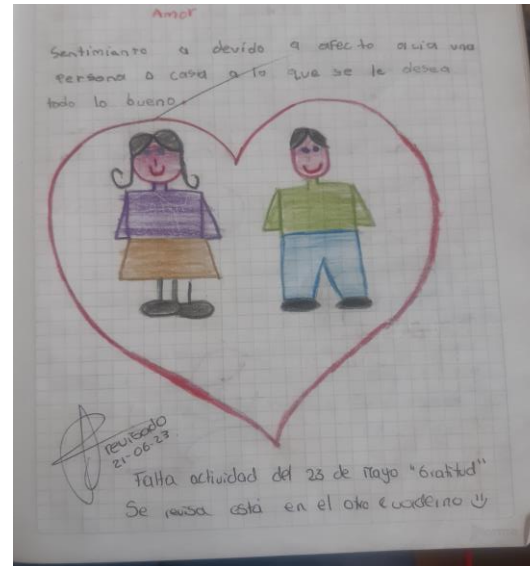 Amor
Sentimiento a devido a afecto acia una
persona o casa a lo que se le desea
todo lo bueno.
revisado
21-06-23
Falta actividad del 23 de Mayo "Gratitud"
Se revisa está en el otro cuaderno